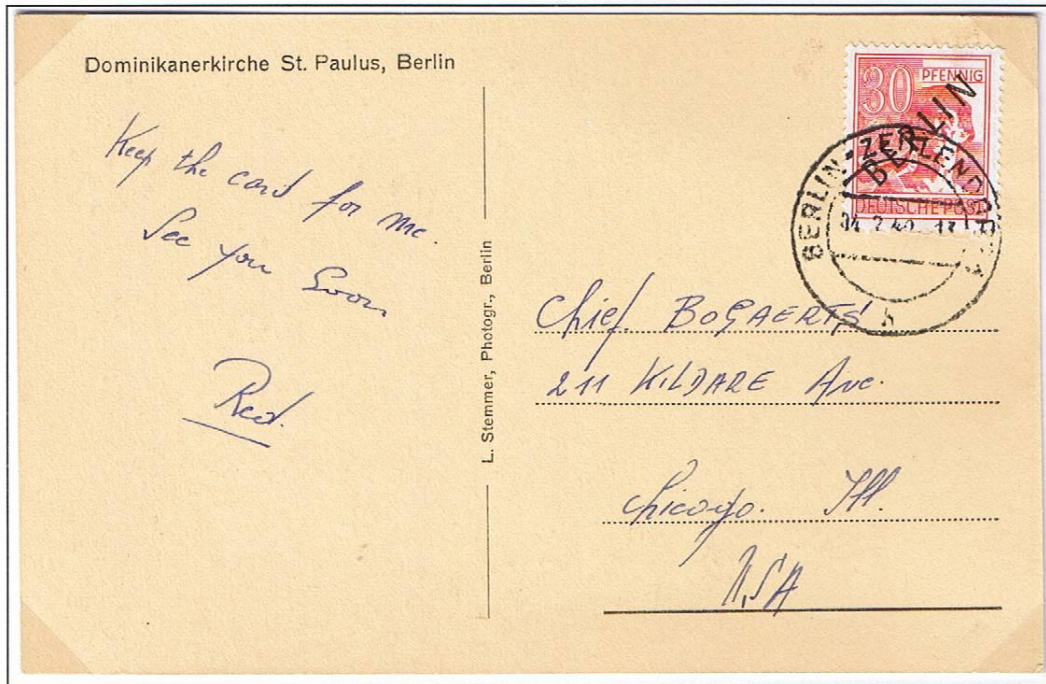 Dominikanerkirche St. Paulus, Berlin
Keep the card for me.
See you soon
Red.
L. Stemmer, Photogr., Berlin
30 PFENNIG
BERLIN
DEUTSCHE POST
BERLIN-ZEHLENDORF
h
Chief. BOGAERTS
211 KILDARE Ave.
Chicago. Ill.
USA